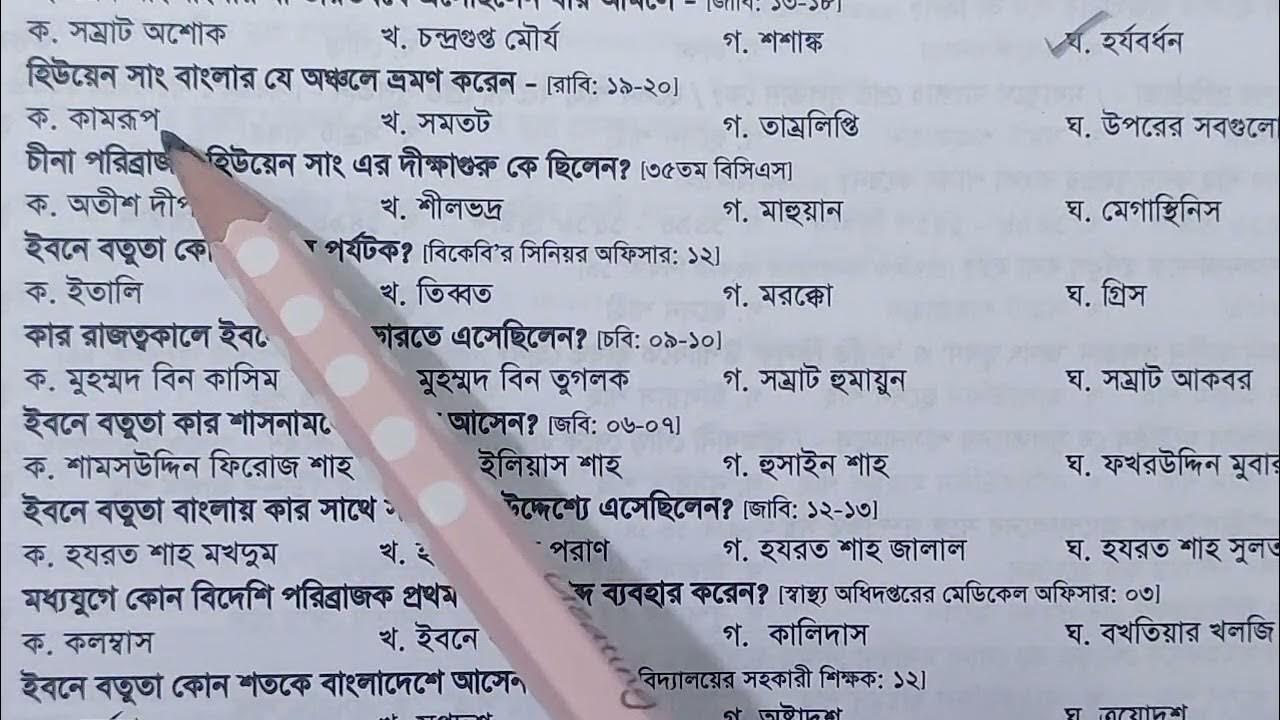 [জাবি: ১৩-১৮]
ক. সম্রাট অশোক খ. চন্দ্রগুপ্ত মৌর্য গ. শশাঙ্ক ঘ. হর্যবর্ধন
হিউয়েন সাং বাংলার যে অঞ্চলে ভ্রমণ করেন - [রাবি: ১৯-২০]
ক. কামরূপ খ. সমতট গ. তাম্রলিপ্তি ঘ. উপরের সবগুলো
চীনা হিউয়েন সাং এর দীক্ষাগুরু কে ছিলেন? [৩৫তম বিসিএস]
ক. অতীশ খ. শীলভদ্র গ. মাহুয়ান ঘ. মেগাস্থিনিস
ইবনে বতুতা পর্যটক? [বিকেবি'র সিনিয়র অফিসার: ১২]
ক. ইতালি খ. তিব্বত গ. মরক্কো ঘ. গ্রিস
কার রাজত্বকালে এসেছিলেন? [চবি: ০৯-১০]
ক. মুহম্মদ বিন কাসিম মুহম্মদ বিন তুগলক গ. সম্রাট হুমায়ুন ঘ. সম্রাট আকবর
ইবনে বতুতা কার আসেন? [জবি: ০৬-০৭]
ক. শামসউদ্দিন ফিরোজ শাহ ইলিয়াস শাহ গ. হুসাইন শাহ ঘ. ফখরউদ্দিন
ইবনে বতুতা বাংলায় কার সাথে এসেছিলেন? [জাবি: ১২-১৩]
ক. হযরত শাহ মখদুম খ. পরাণ গ. হযরত শাহ জালাল ঘ. হযরত শাহ
মধ্যযুগে কোন বিদেশি পরিব্রাজক প্রথম ব্যবহার করেন? [স্বাস্থ্য অধিদপ্তরের মেডিকেল অফিসার: ০৩]
ক. কলম্বাস খ. ইবনে গ. কালিদাস ঘ. বখতিয়ার খলজি
ইবনে বতুতা কোন শতকে বাংলাদেশে আসেন বিদ্যালয়ের সহকারী শিক্ষক: ১২]
গ. অষ্টাদশ ঘ. ত্রয়োদশ